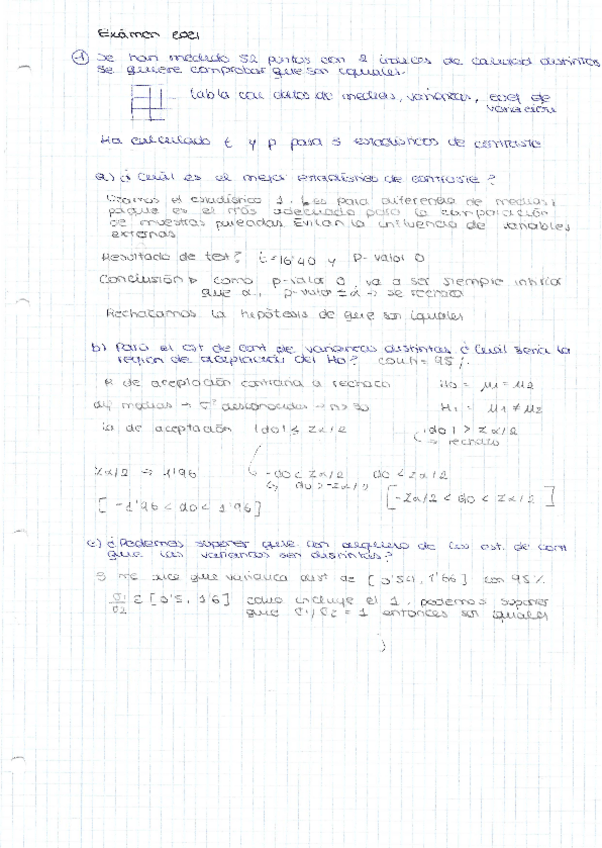 Exámen 2021
① Se han medido 52 puntos con 2 índices de calidad distintos
se quiere comprobar que son iguales.
tabla con datos de medias, varianzas, coef de
variación
Ha calculado t y p para 3 estadísticos de contraste
a) ¿Cuál es el mejor estadístico de contraste?
Usamos el estadístico 1. es para diferencia de medias
porque es el más adecuado para la comparación
de muestras pareadas. Evitan la influencia de variables
externas
Resultado de test? t=16'40 y P-valor 0
Conclusión como p-valor 0, va a ser siempre inferior
que α, p-valor ≤ α → se rechaza
Rechazamos la hipótesis de que son iguales
b) Para el est de cont de varianzas distintas ¿Cuál sería la
región de aceptación del Ho? conf = 95%
R de aceptación contraria a rechazo Ho = μ1 = μ2
dif medias → σ² desconocidas → n > 30 H1 = μ1 ≠ μ2
de aceptación |do| ≤ Zα/2 |do| > Zα/2
↳ rechazo
Zα/2 → 1'96 -do < Zα/2 do < Zα/2
↳ do > -Zα/2 [-Zα/2 < do < Zα/2]
[-1'96 < do < 1'96]
c) ¿Podemos suponer que con alguno de los est. de cont
que las varianzas son distintas?
me dice que varianza dist de [0'54, 1'66] con 95%
σ1/σ2 ∈ [0'5, 1'6] como incluye el 1, podemos suponer
que σ1/σ2 = 1 entonces son iguales